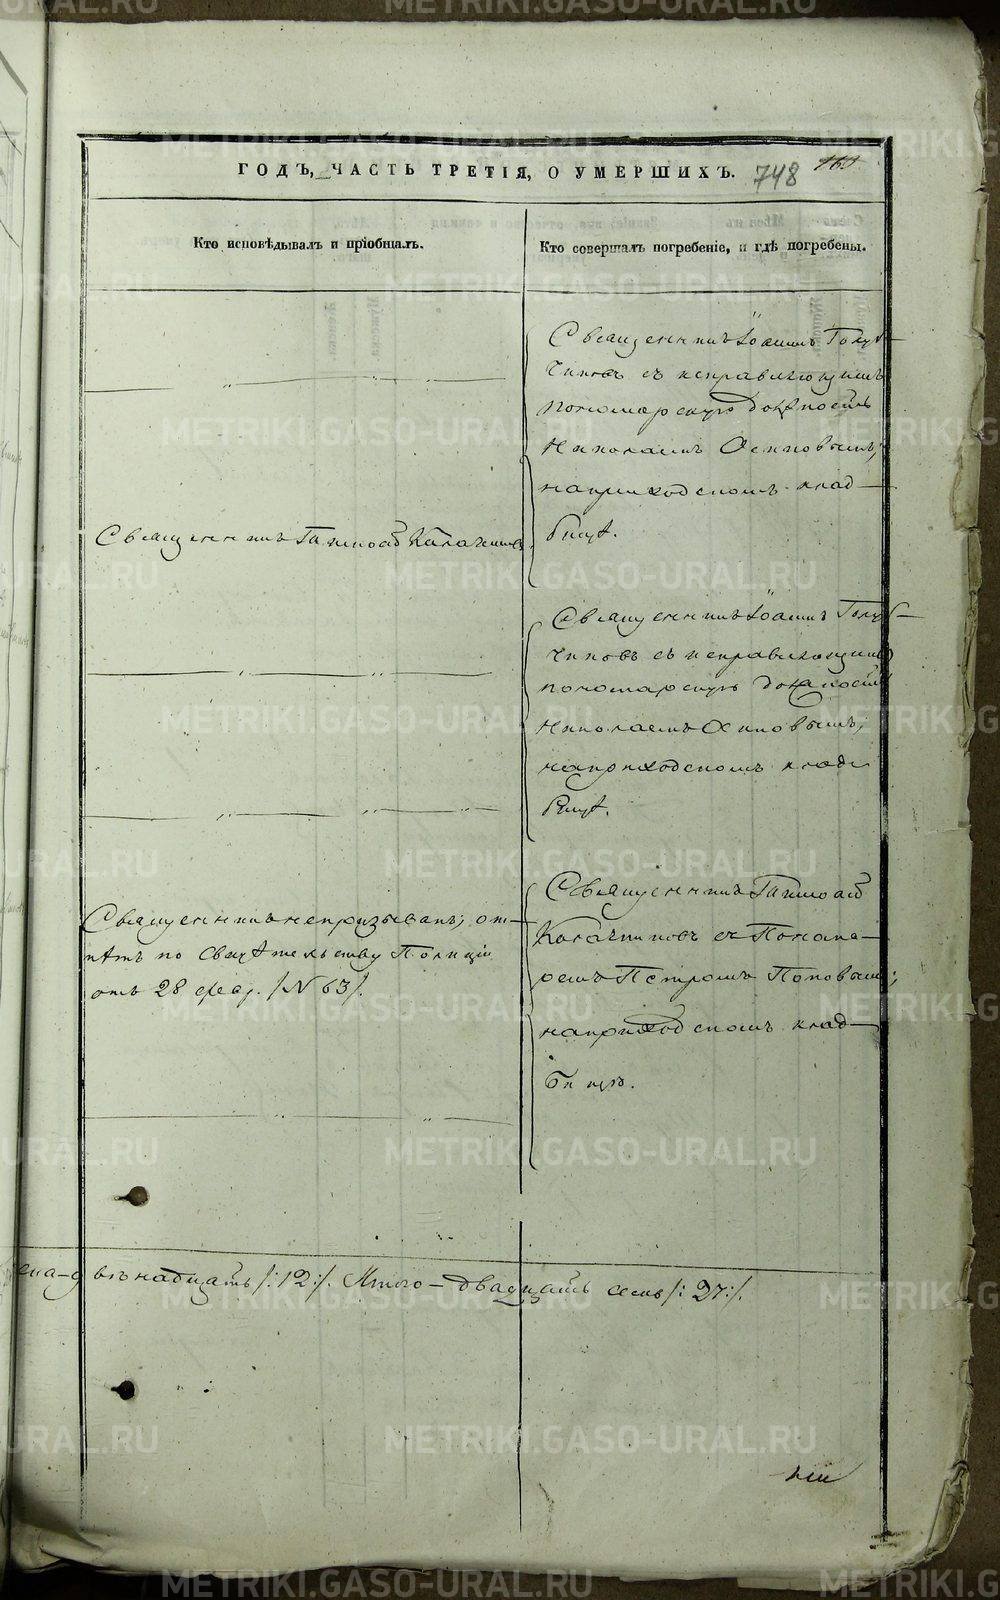 ГОДЪ, ЧАСТЬ ТРЕТІЯ, О УМЕРШИХЪ. 748 161
Кто исповѣдывалъ и пріобщалъ.
Кто совершалъ погребеніе, и гдѣ погребены.
Священникъ Іоаннъ Голуб-
чиковъ съ исправляющимъ
пономарскую должность
Николаемъ Осиповымъ;
на приходскомъ клад-
бищѣ.
Священникъ Тимоѳей Калачниковъ
Священникъ Іоаннъ Голуб-
чиковъ съ исправляющимъ
пономарскую должность
Николаемъ Осиповымъ;
на приходскомъ клад-
бищѣ.
Священникъ не призыванъ; от-
пѣтъ по свидѣтельству Полиціи
отъ 28 февр. /№ 63/.
Священникъ Тимоѳей
Калачниковъ съ Понама-
ремъ Петромъ Поповымъ;
на приходскомъ клад-
бищѣ.
двѣнадцать /:12:/. Итого - двадцать семь /: 27:/.
METRIKI.GASO-URAL.RU